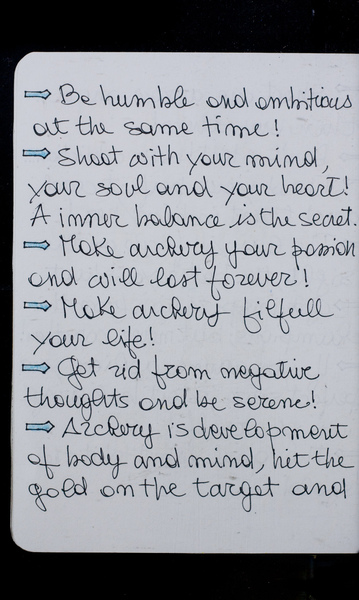 ⇒ Be humble and ambitious
at the same time!
⇒ Shoot with your mind,
your soul and your heart!
A inner balance is the secret.
⇒ Make archery your passion
and will last forever!
⇒ Make archery filfull
your life!
⇒ Get rid from negative
thoughts and be serene!
⇒ Archery is development
of body and mind, hit the
gold on the target and